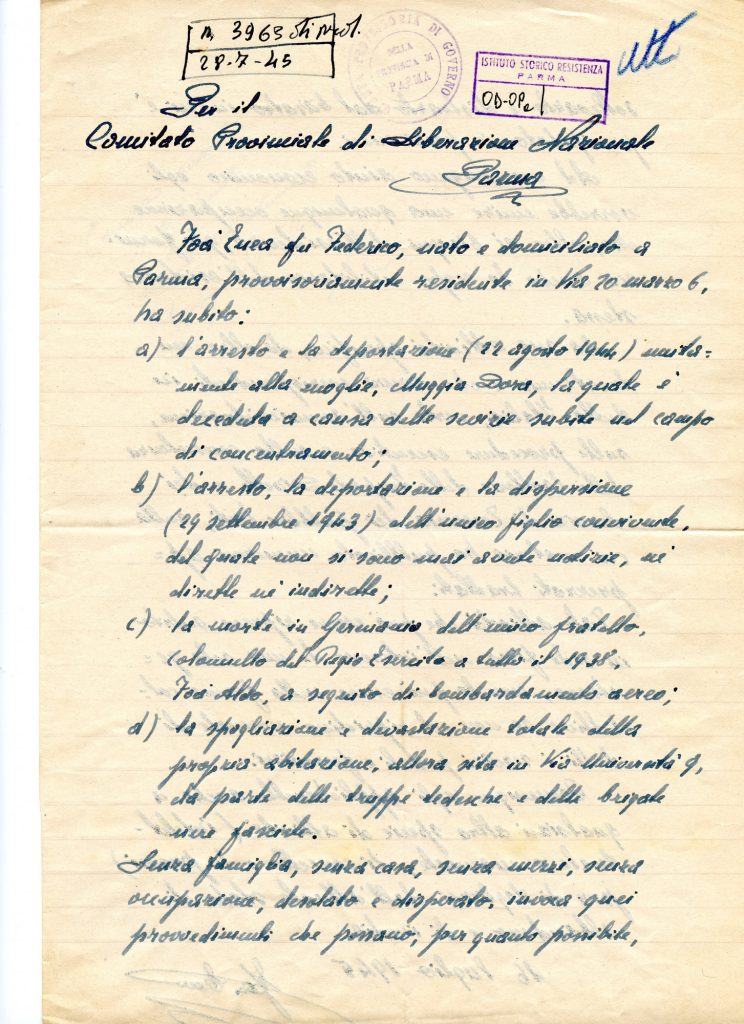 n. 3963 di prot.
28-7-45
PREFETTURA DI GOVERNO
DELLA
PROVINCIA DI
PARMA
ISTITUTO STORICO RESISTENZA
PARMA
OD-OPe
Per il
Comitato Provinciale di Liberazione Nazionale
Parma
Foà Enea fu Federico, nato e domiciliato a
Parma, provvisoriamente residente in Via 20 marzo 6,
ha subito:
a) l'arresto e la deportazione (22 agosto 1944) unita=
mente alla moglie, Muggia Dora, la quale è
deceduta a causa delle sevizie subite nel campo
di concentramento;
b) l'arresto, la deportazione e la dispersione
(29 settembre 1943) dell'unico figlio convivente,
del quale non si sono mai avute notizie, né
dirette né indirette;
c) la morte in Germania dell'unico fratello,
colonnello del Regio Esercito a tutto il 1938.
Foà Aldo, a seguito di bombardamento aereo;
d) la spogliazione e devastazione totale della
propria abitazione, allora sita in Via Università 9,
da parte delle truppe tedesche e delle brigate
nere fasciste.
Senza famiglia, senza casa, senza mezzi, senza
occupazione, desolato e disperato, invoca quei
provvedimenti che possano, per quanto possibile,